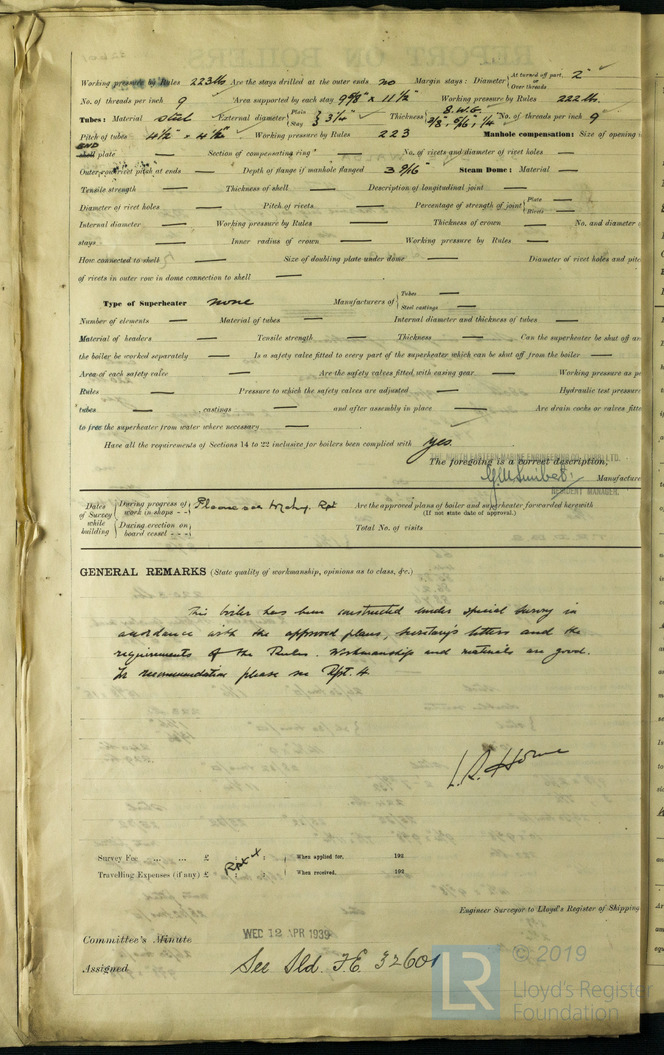 Working pressure by Rules 223 lb Are the stays drilled at the outer ends no Margin stays: Diameter { At turned off part, or Over threads 2"
No. of threads per inch 9 Area supported by each stay 9 5/8" x 11 1/2" Working pressure by Rules 222 lb.
Tubes: Material steel External diameter { Plain Stay } 3 1/4" Thickness { 8 W.G. 3/8, 5/16, 1/4 No. of threads per inch 9
Pitch of tubes 4 1/2" x 4 1/2" Working pressure by Rules 223 Manhole compensation: Size of opening in
END shell plate — Section of compensating ring — No. of rivets and diameter of rivet holes —
Outer row rivet pitch at ends — Depth of flange if manhole flanged 3 9/16" Steam Dome: Material —
Tensile strength — Thickness of shell — Description of longitudinal joint —
Diameter of rivet holes — Pitch of rivets — Percentage of strength of joint { Plate — Rivets —
Internal diameter — Working pressure by Rules — Thickness of crown — No. and diameter
stays — Inner radius of crown — Working pressure by Rules —
How connected to shell — Size of doubling plate under dome — Diameter of rivet holes and pitc
of rivets in outer row in dome connection to shell —
Type of Superheater none Manufacturers of { Tubes — Steel castings —
Number of elements — Material of tubes — Internal diameter and thickness of tubes —
Material of headers — Tensile strength — Thickness — Can the superheater be shut off an
the boiler be worked separately — Is a safety valve fitted to every part of the superheater which can be shut off from the boiler —
Area of each safety valve — Are the safety valves fitted with easing gear — Working pressure as pe
Rules — Pressure to which the safety valves are adjusted — Hydraulic test pressure
tubes — castings — and after assembly in place — Are drain cocks or valves fitte
to free the superheater from water where necessary —
Have all the requirements of Sections 14 to 22 inclusive for boilers been complied with yes.
NORTH EASTERN MARINE ENGINEERING
The foregoing is a correct description,
Manufacture
RESIDENT MANAGER.
Dates of Survey while building { During progress of work in shops - - } Please see Mchy. Rpt Are the approved plans of boiler and superheater forwarded herewith
(If not state date of approval.)
During erection on board vessel - - - } Total No. of visits
GENERAL REMARKS (State quality of workmanship, opinions as to class, &c.)
This boiler has been constructed under special survey in
accordance with the approved plans, Secretary's letters and the
requirements of the Rules. Workmanship and materials are good.
recommendation please see Rpt. 4
L.R. Horne
Survey Fee ... ... £ Rpt 4 : : When applied for, 192
Travelling Expenses (if any) £ : : When received, 192
Engineer Surveyor to Lloyd's Register of Shipping
Committee's Minute WED 12 APR 1939
Assigned See Sld. F.E. 32601
LR © 2019
Lloyd's Register
Foundation